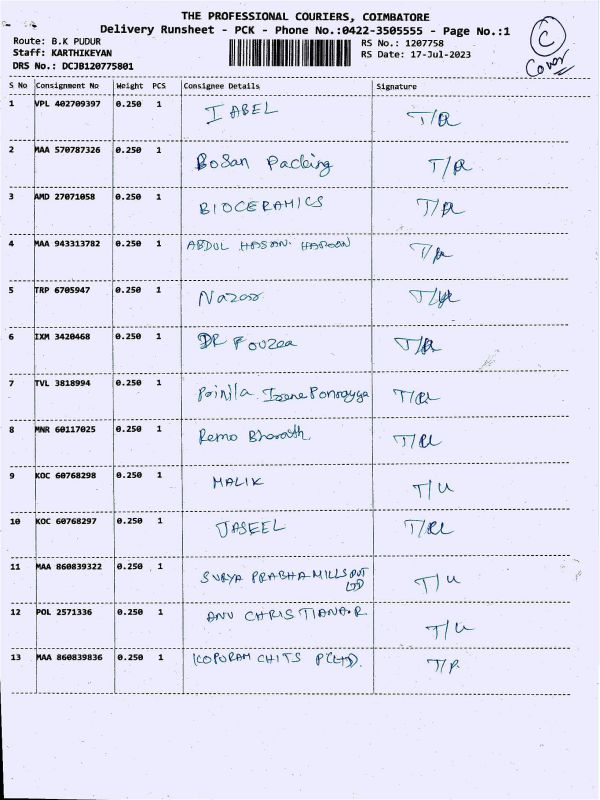 THE PROFESSIONAL COURIERS, COIMBATORE
Delivery Runsheet - PCK - Phone No.:0422-3505555 - Page No.:1
Route: B.K PUDUR
RS No.: 1207758
Staff: KARTHIKEYAN
RS Date: 17-Jul-2023
DRS No.: DCJB120775801
C
Cover
S No Consignment No Weight PCS Consignee Details Signature
1 VPL 402709397 0.250 1 I ABEL T/R
2 MAA 570787326 0.250 1 BoSan Packing T/R
3 AMD 27071058 0.250 1 BIOCERAMICS T/R
4 MAA 943313782 0.250 1 ABDUL HASAN. HAROON T/R
5 TRP 6705947 0.250 1
6 IXM 3420468 0.250 1 DR Fouzea T/R
7 TVL 3818994 0.250 1
8 MNR 60117025 0.250 1 Remo Bharath
9 KOC 60768298 0.250 1 MALIK T/U
10 KOC 60768297 0.250 1 JASEEL
11 MAA 860839322 0.250 1 SURYA PRABHA MILLS PVT T/U
LTD
12 POL 2571336 0.250 1 ANU CHRISTIANA.R T/U
13 MAA 860839836 0.250 1 KOPURAM CHITS P(LTD). T/R